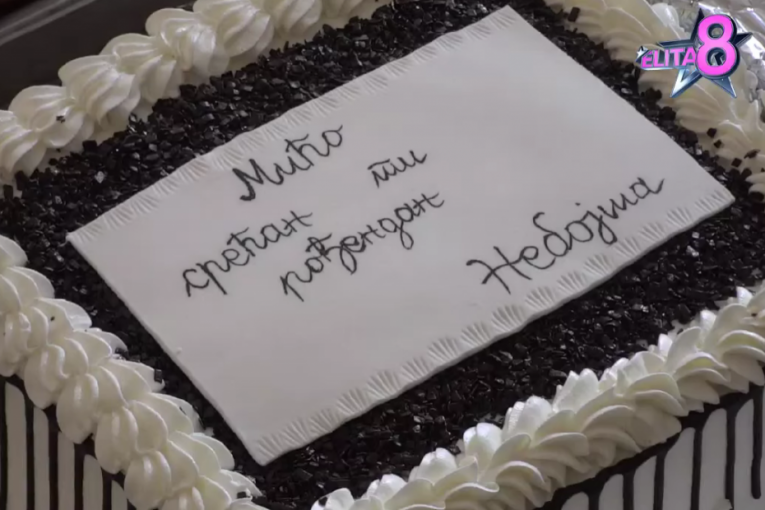 ELITA 8
Мићо
срећан ти
рођендан
Небојша